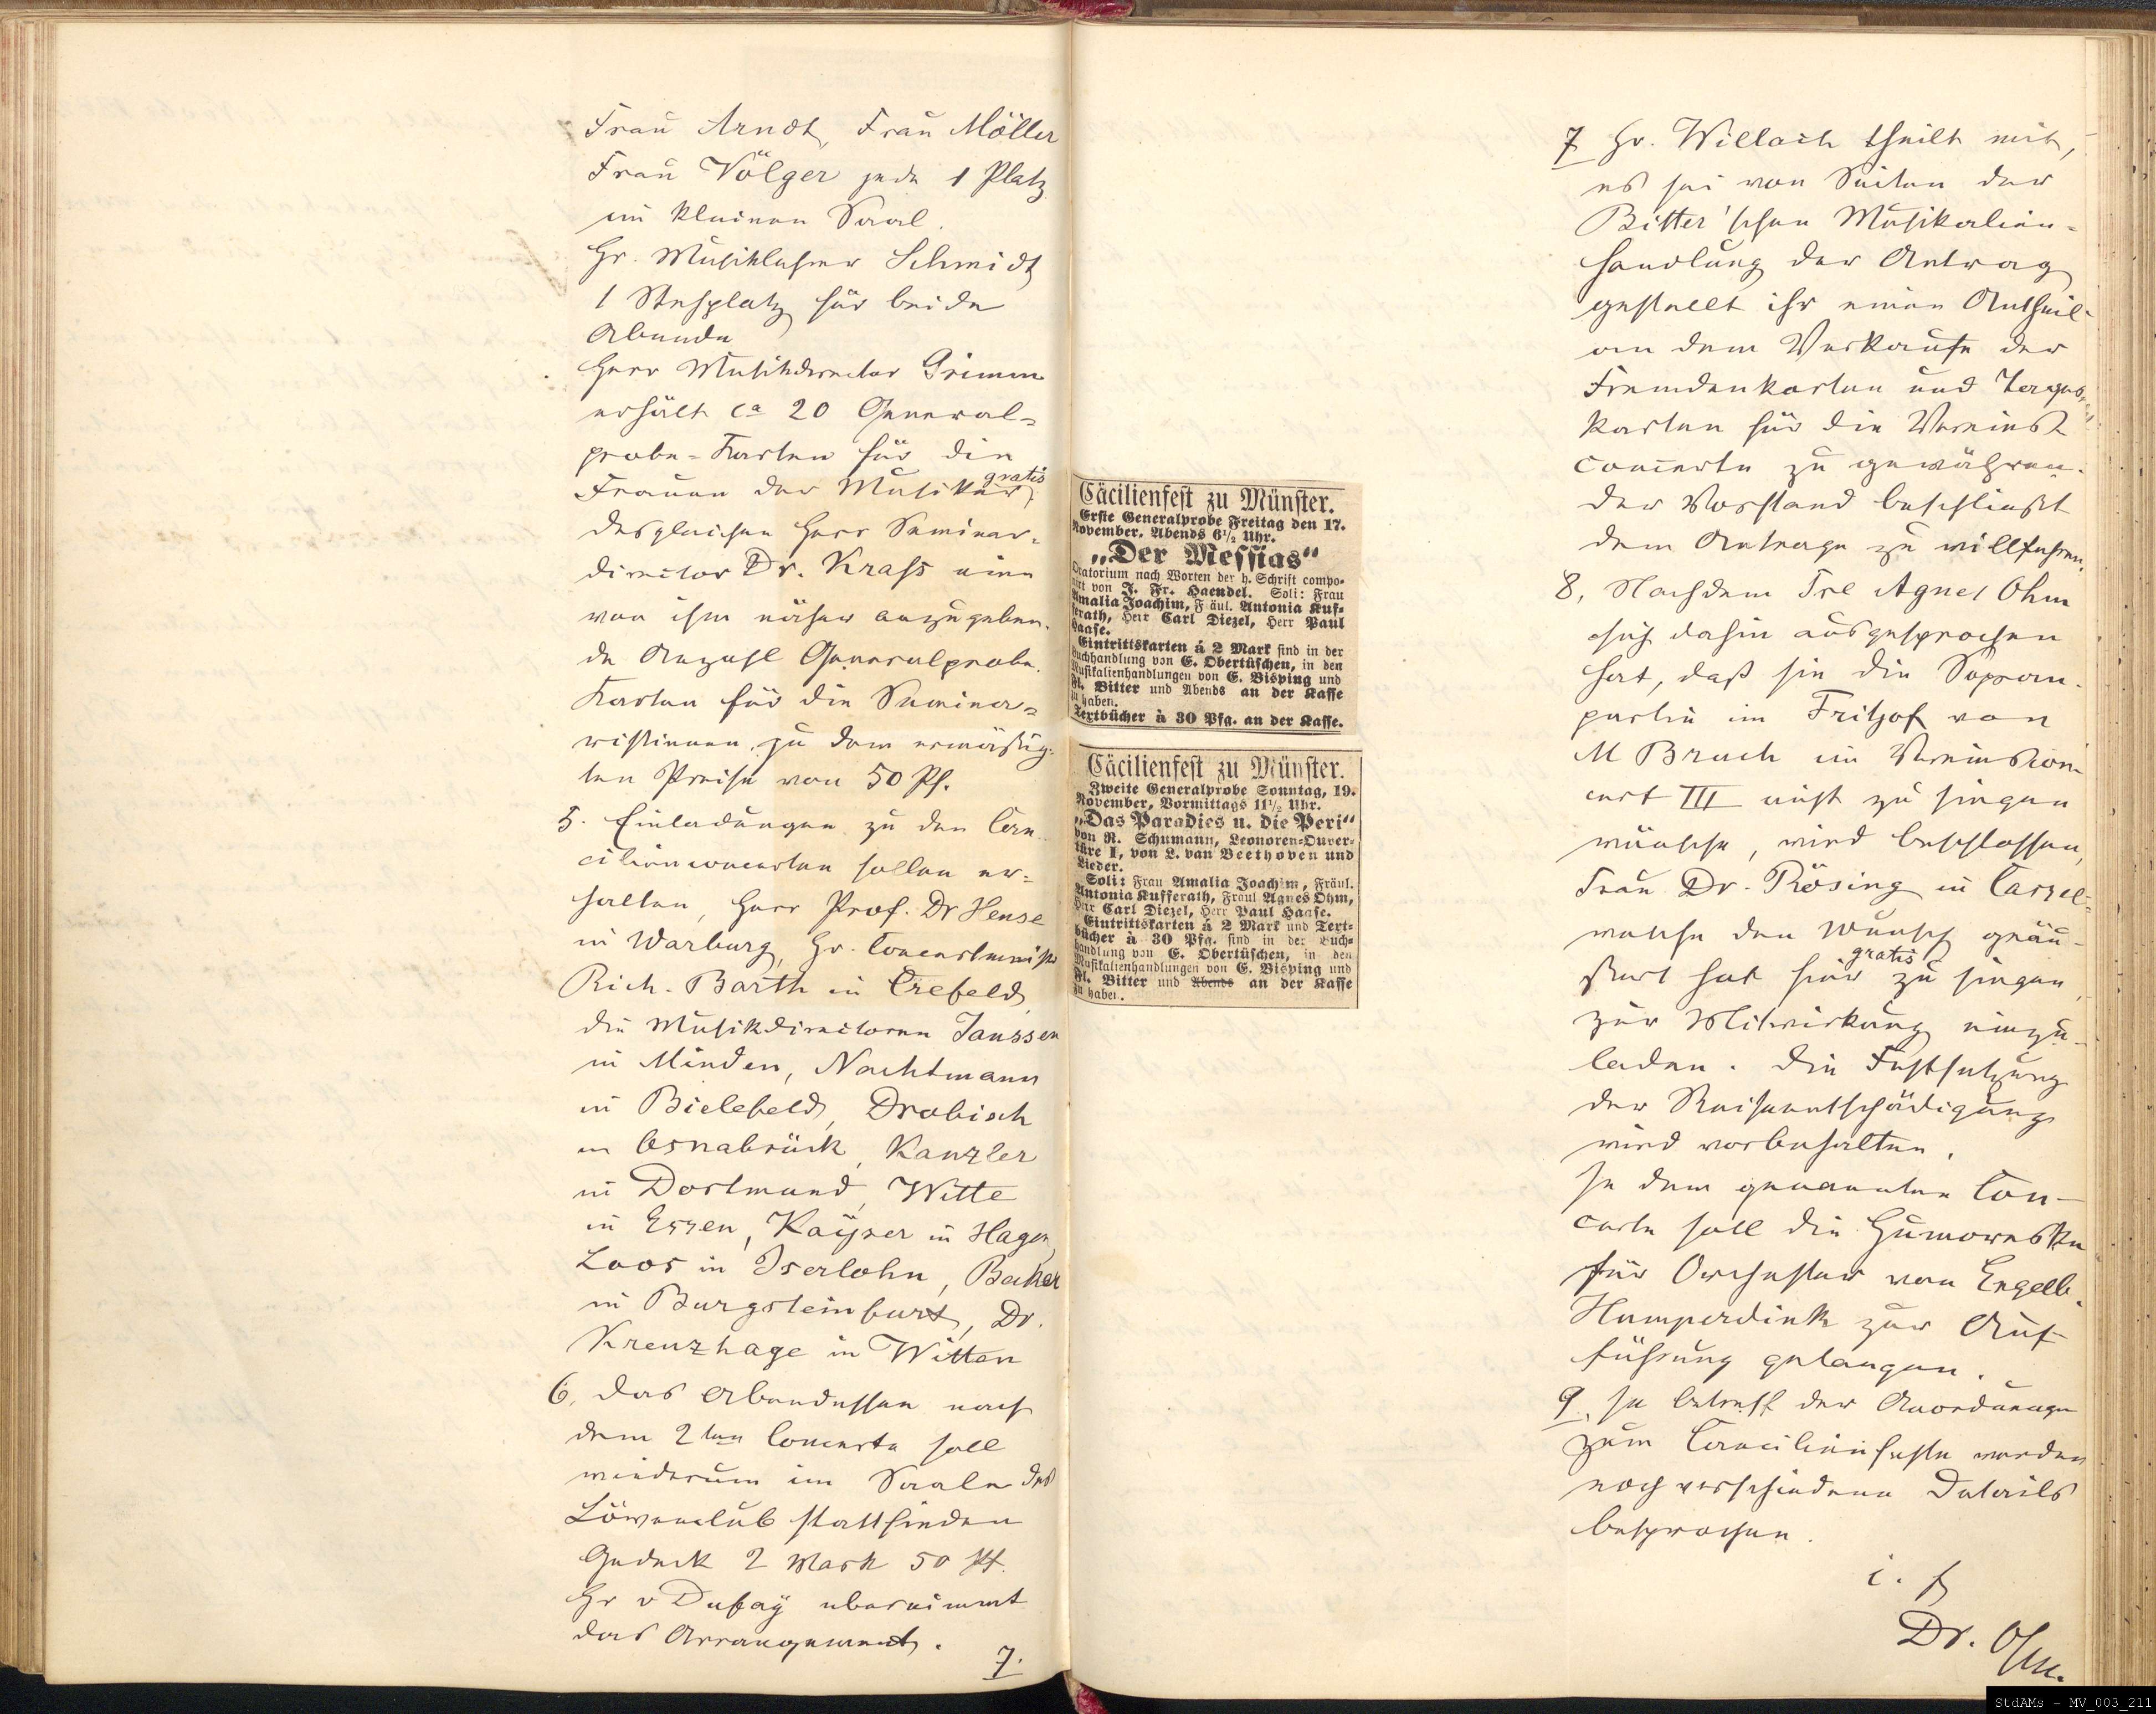 Frau Arndt, Frau Möller
Frau Völger jede 1 Platz
im kleinen Saal.
Hr. Musiklehrer Schmidt
1 Stehplatz für beide
Abende
Herr Musikdirector Grimm
erhält ca 20 General-
probe-Karten für die
Frauen der Musiker gratis,
desgleichen Herr Seminar-
director Dr. Krass eine
von ihm näher anzugeben-
de Anzahl Generalprobe-
Karten für die Semina-
ristinnen zu dem ermäßig-
ten Preise von 50 Pf.
5. Einladungen zu den Cae-
cilienconcerten sollen er-
halten, Herr Prof. Dr Hense
in Warburg, Hr. Concertmeister
Rich. Barth in Crefeld,
die Musikdirectoren Janssen
in Minden, Nachtmann
in Bielefeld, Drobisch
in Osnabrück, Kanzler
in Dortmund, Witte
in Essen, Kayser in Hagen,
Loos in Iserlohn, Becker
in Burgsteinfurt, Dr.
Kreuzhage in Witten
6, das Abendessen nach
dem 2ten Concerte soll
wiederum im Saale des
Löwenclub stattfinden
Gedeck 2 Mark 50 Pf.
Hr v Dufay übernimmt
das Arrangement.
7.
Cäcilienfest zu Münster.
Erste Generalprobe Freitag den 17.
November. Abends 6½ Uhr.
„Der Messias“
Oratorium nach Worten der h. Schrift compo-
nirt von J. Fr. Haendel. Soli: Frau
Amalia Joachim, Fräul. Antonia Kuf-
ferath, Herr Carl Diezel, Herr Paul
Haase.
Eintrittskarten á 2 Mark sind in der
Buchhandlung von E. Obertüschen, in den
Musikalienhandlungen von E. Bisping und
Fl. Bitter und Abends an der Kasse
zu haben.
Textbücher à 30 Pfg. an der Kasse.
Cäcilienfest zu Münster.
Zweite Generalprobe Sonntag, 19.
November, Vormittags 11½ Uhr.
„Das Paradies u. die Peri“
von R. Schumann, Leonoren-Ouver-
türe I, von L. van Beethoven und
Lieder.
Soli: Frau Amalia Joachim, Fräul.
Antonia Kufferath, Fräul Agnes Ohm,
Herr Carl Diezel, Herr Paul Haase.
Eintrittskarten á 2 Mark und Text-
bücher à 30 Pfg. sind in der Buch-
handlung von E. Obertüschen, in den
Musikalienhandlungen von E. Bisping und
Fl. Bitter und Abends an der Kasse
zu haben.
7 Hr. Willach theilt mit,
es sei von Seiten der
Bitter'schen Musikalien-
handlung der Antrag
gestellt ihr einen Antheil
an dem Verkaufe der
Fremdenkarten und Tages-
karten für die Vereins-
concerte zu gewähren.
der Vorstand beschließt
dem Antrage zu willfahren.
8, Nachdem Frl Agnes Ohm
sich dahin ausgesprochen
hat, daß sie die Sopran-
partie im Fritjof von
M Bruch im Vereinscon-
cert III nicht zu singen
wünsche, wird beschlossen,
Frau Dr. Rösing in Cassel
welche den Wunsch geäu-
ßert hat hier gratis zu singen,
zur Mitwirkung einzu-
laden. Die Festsetzung
der Reiseentschädigung
wird vorbehalten.
In dem genannten Con-
certe soll die Humoreske
für Orchester von Engelb.
Humperdink zur Auf-
führung gelangen.
9, In betreff der Anordnungen
zum Caecilienfeste werden
noch verschiedene Details
besprochen.
Dr. Ohm.
StdAMs - MV_003_211